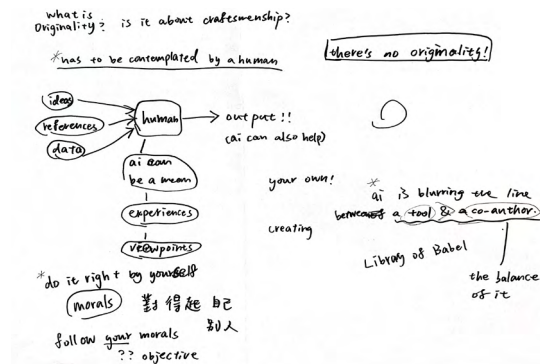 what is
Originality? is it about craftsmenship?
*has to be contemplated by a human
there's no originality!
ideas
references
data
human
output!!
(ai can also help)
ai can
be a mean
experiences
viewpoints
your own!
creating
*
ai is blurring the line
between a tool & a co-author.
Library of Babel
the balance
of it
*do it right by yourself
morals
對得起自己
別人
follow your morals
?? objective